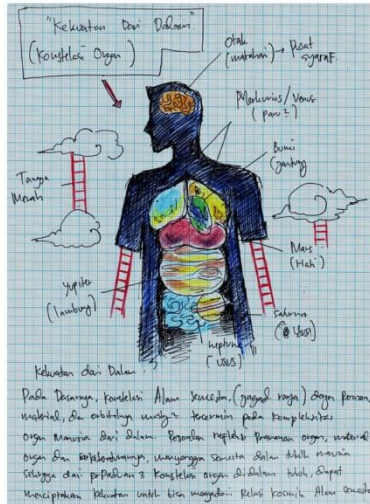 "Kekuatan Dari Dalam"
(Konstelasi Organ)
Otak
(matahari) → Pusat
syaraf
Merkurius / Venus
(paru²)
Bumi
(jantung
Tangga
Merah
Mars
(Hati)
Yupiter
(lambung)
Saturnus
(usus)
Neptunus
(usus)
Kekuatan dari Dalam :
Pada Dasarnya, konstelasi Alam semesta, (jagad raya) dengan
material, dan orbitalnya masing² tercermin pada kompleksitas
organ manusia dari dalam. organ, material
organ dan semesta dalam tubuh manusia
sehingga dari konstelasi organ didalam tubuh, dapat
menciptakan kekuatan untuk bisa Relasi kosmik Alam semesta